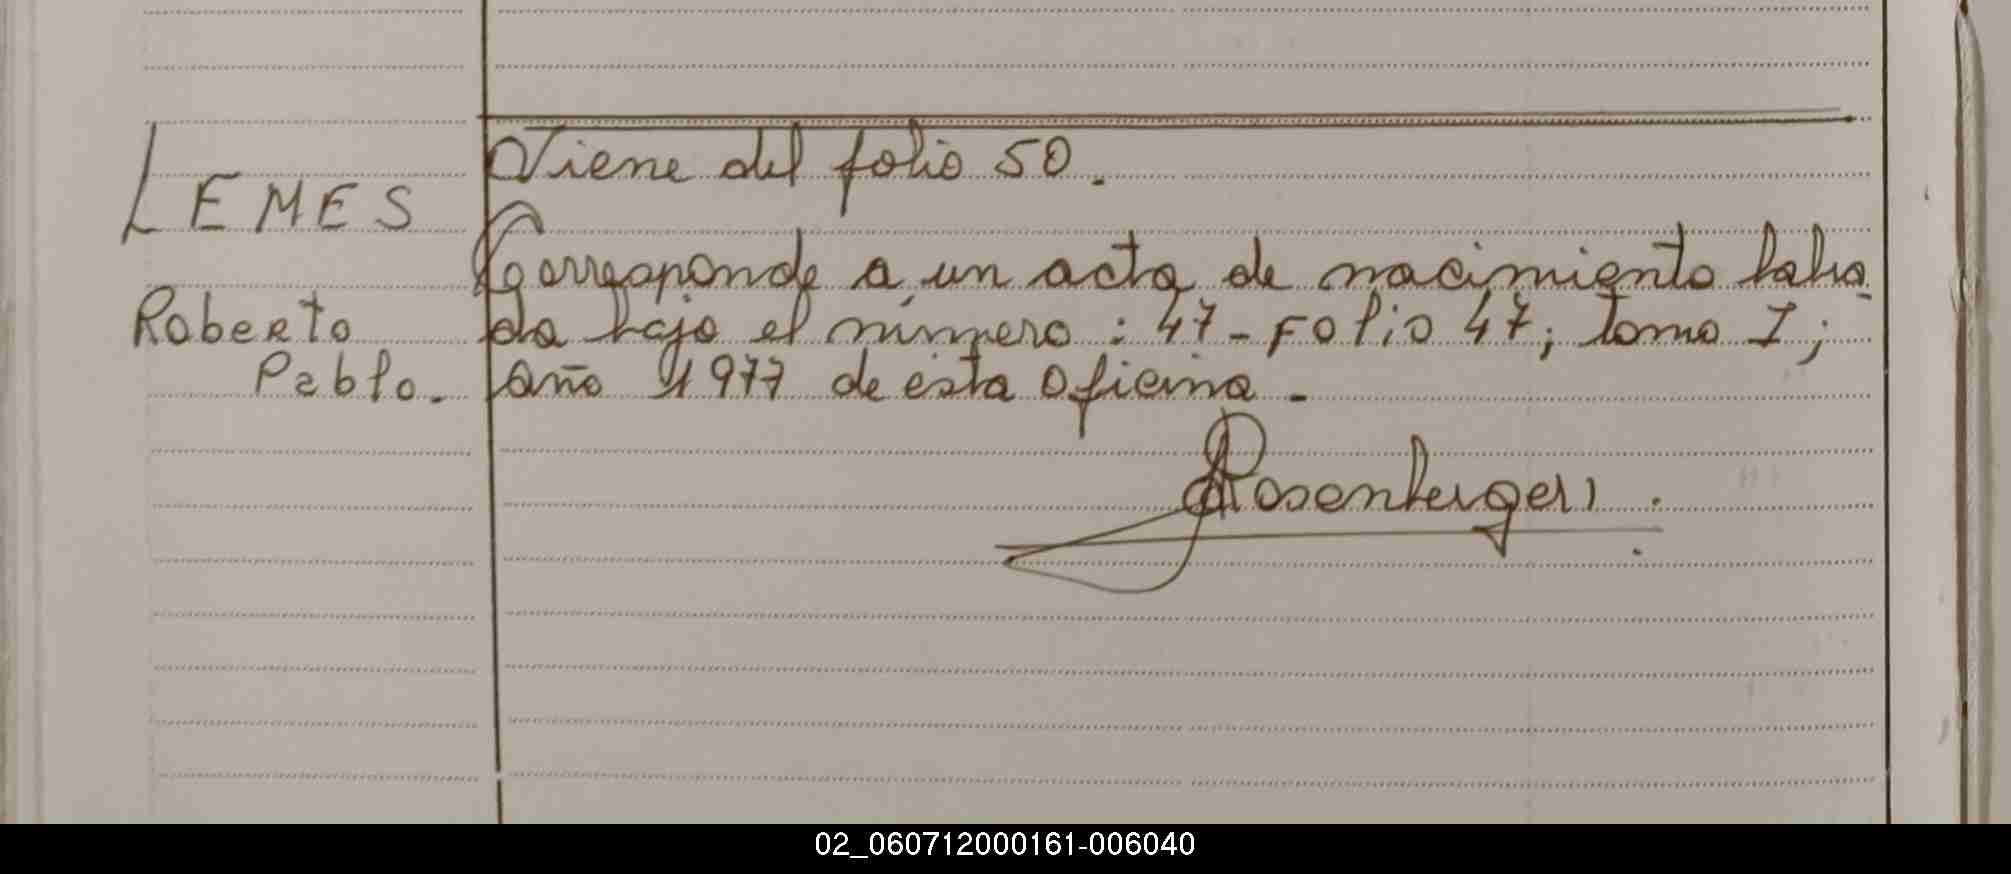 LEMES
Roberto
Pablo.
Viene del folio 50.
Corresponde a un acta de nacimiento labra
da bajo el número: 47-Folio 47; tomo I;
año 1977 de esta Oficina.-
Rosenberger
02_060712000161-006040